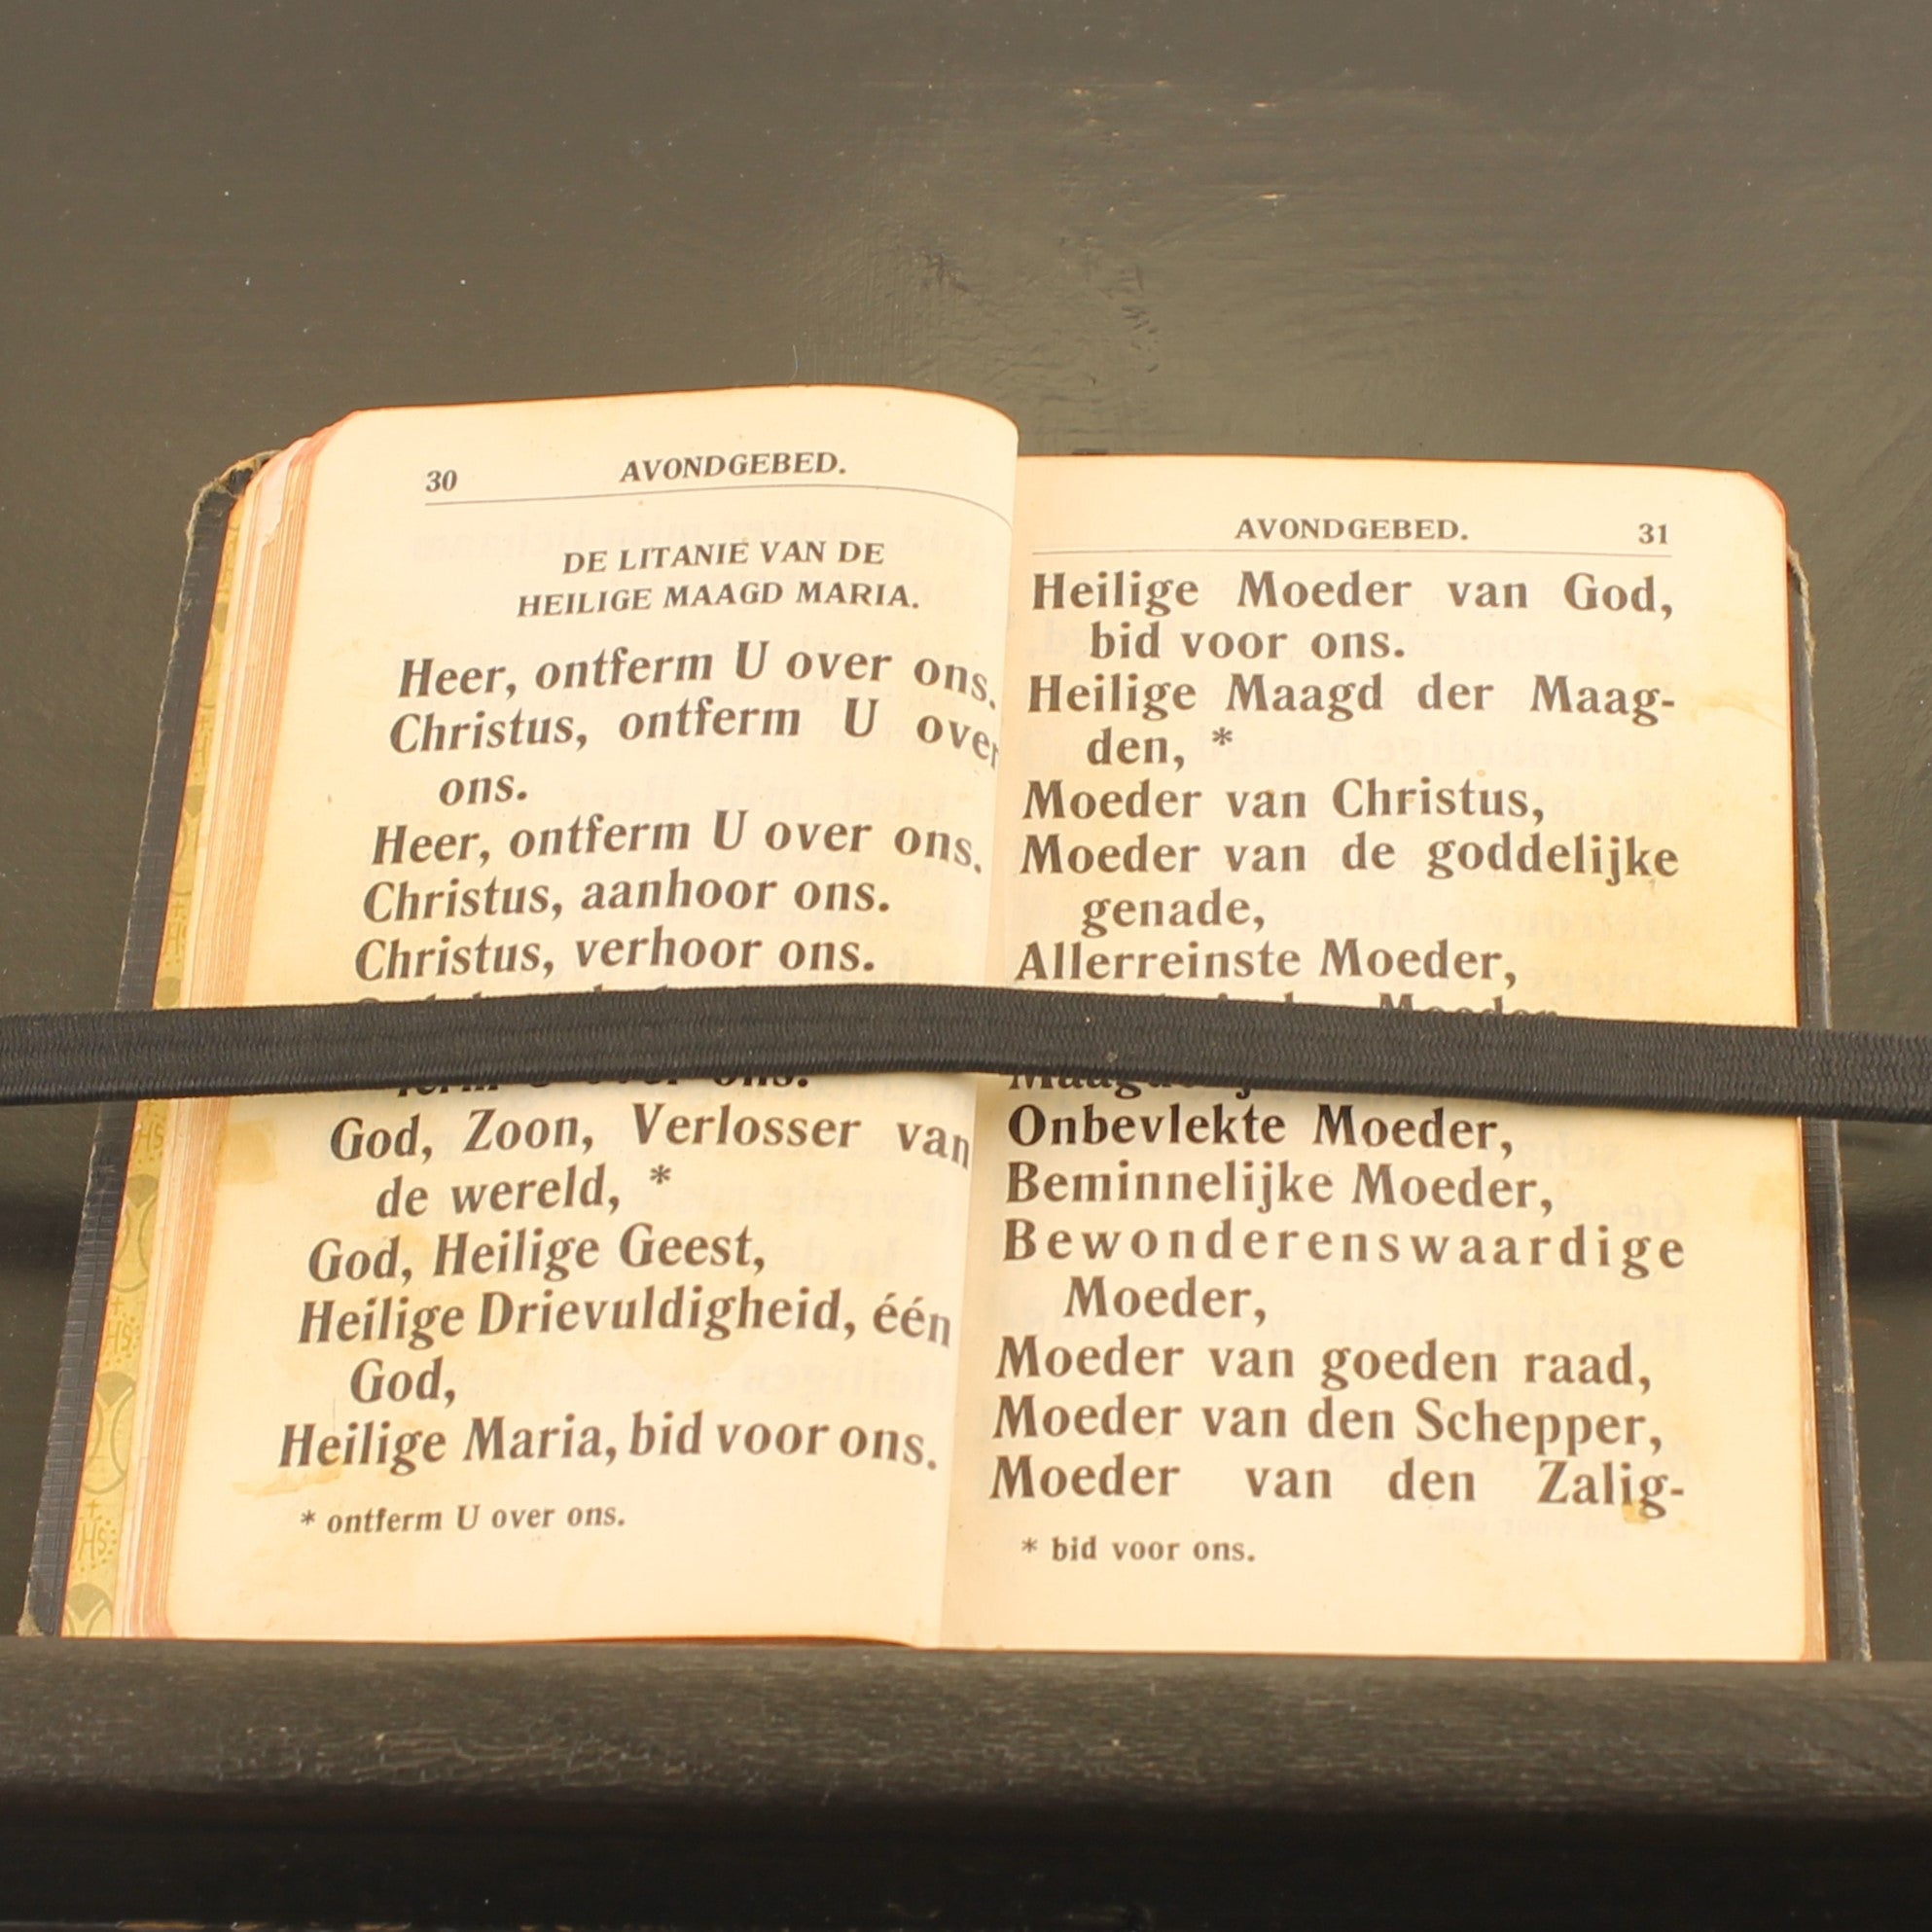 30 AVONDGEBED.
DE LITANIE VAN DE
HEILIGE MAAGD MARIA.
Heer, ontferm U over ons.
Christus, ontferm U over
ons.
Heer, ontferm U over ons.
Christus, aanhoor ons.
Christus, verhoor ons.
U over ons.
God, Zoon, Verlosser van
de wereld, *
God, Heilige Geest,
Heilige Drievuldigheid, één
God,
Heilige Maria, bid voor ons.
* ontferm U over ons.
AVONDGEBED. 31
Heilige Moeder van God,
bid voor ons.
Heilige Maagd der Maag-
den, *
Moeder van Christus,
Moeder van de goddelijke
genade,
Allerreinste Moeder,
Moeder,
Onbevlekte Moeder,
Beminnelijke Moeder,
Bewonderenswaardige
Moeder,
Moeder van goeden raad,
Moeder van den Schepper,
Moeder van den Zalig-
* bid voor ons.